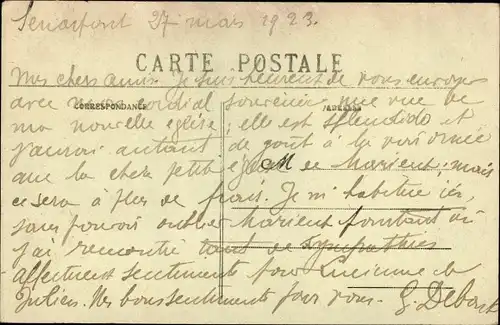 Senarpont 27 mars 1923.
CARTE POSTALE
Mes chers amis. Je suis heureux de vous envoyer
CORRESPONDANCE
ADRESSE
avec cordial souvenir, une vue de
ma nouvelle église; elle est splendide et
j'aurai autant de goût à la voir ornée
que la chère petite église de Marient; mais
ce sera à plus de frais. Je m'habitue ici
sans pouvoir oublier Marient pourtant où
j'ai rencontré tant de sympathies
affectueux sentiments pour Lucienne et
Julien. Mes bons sentiments pour vous. G. Debast